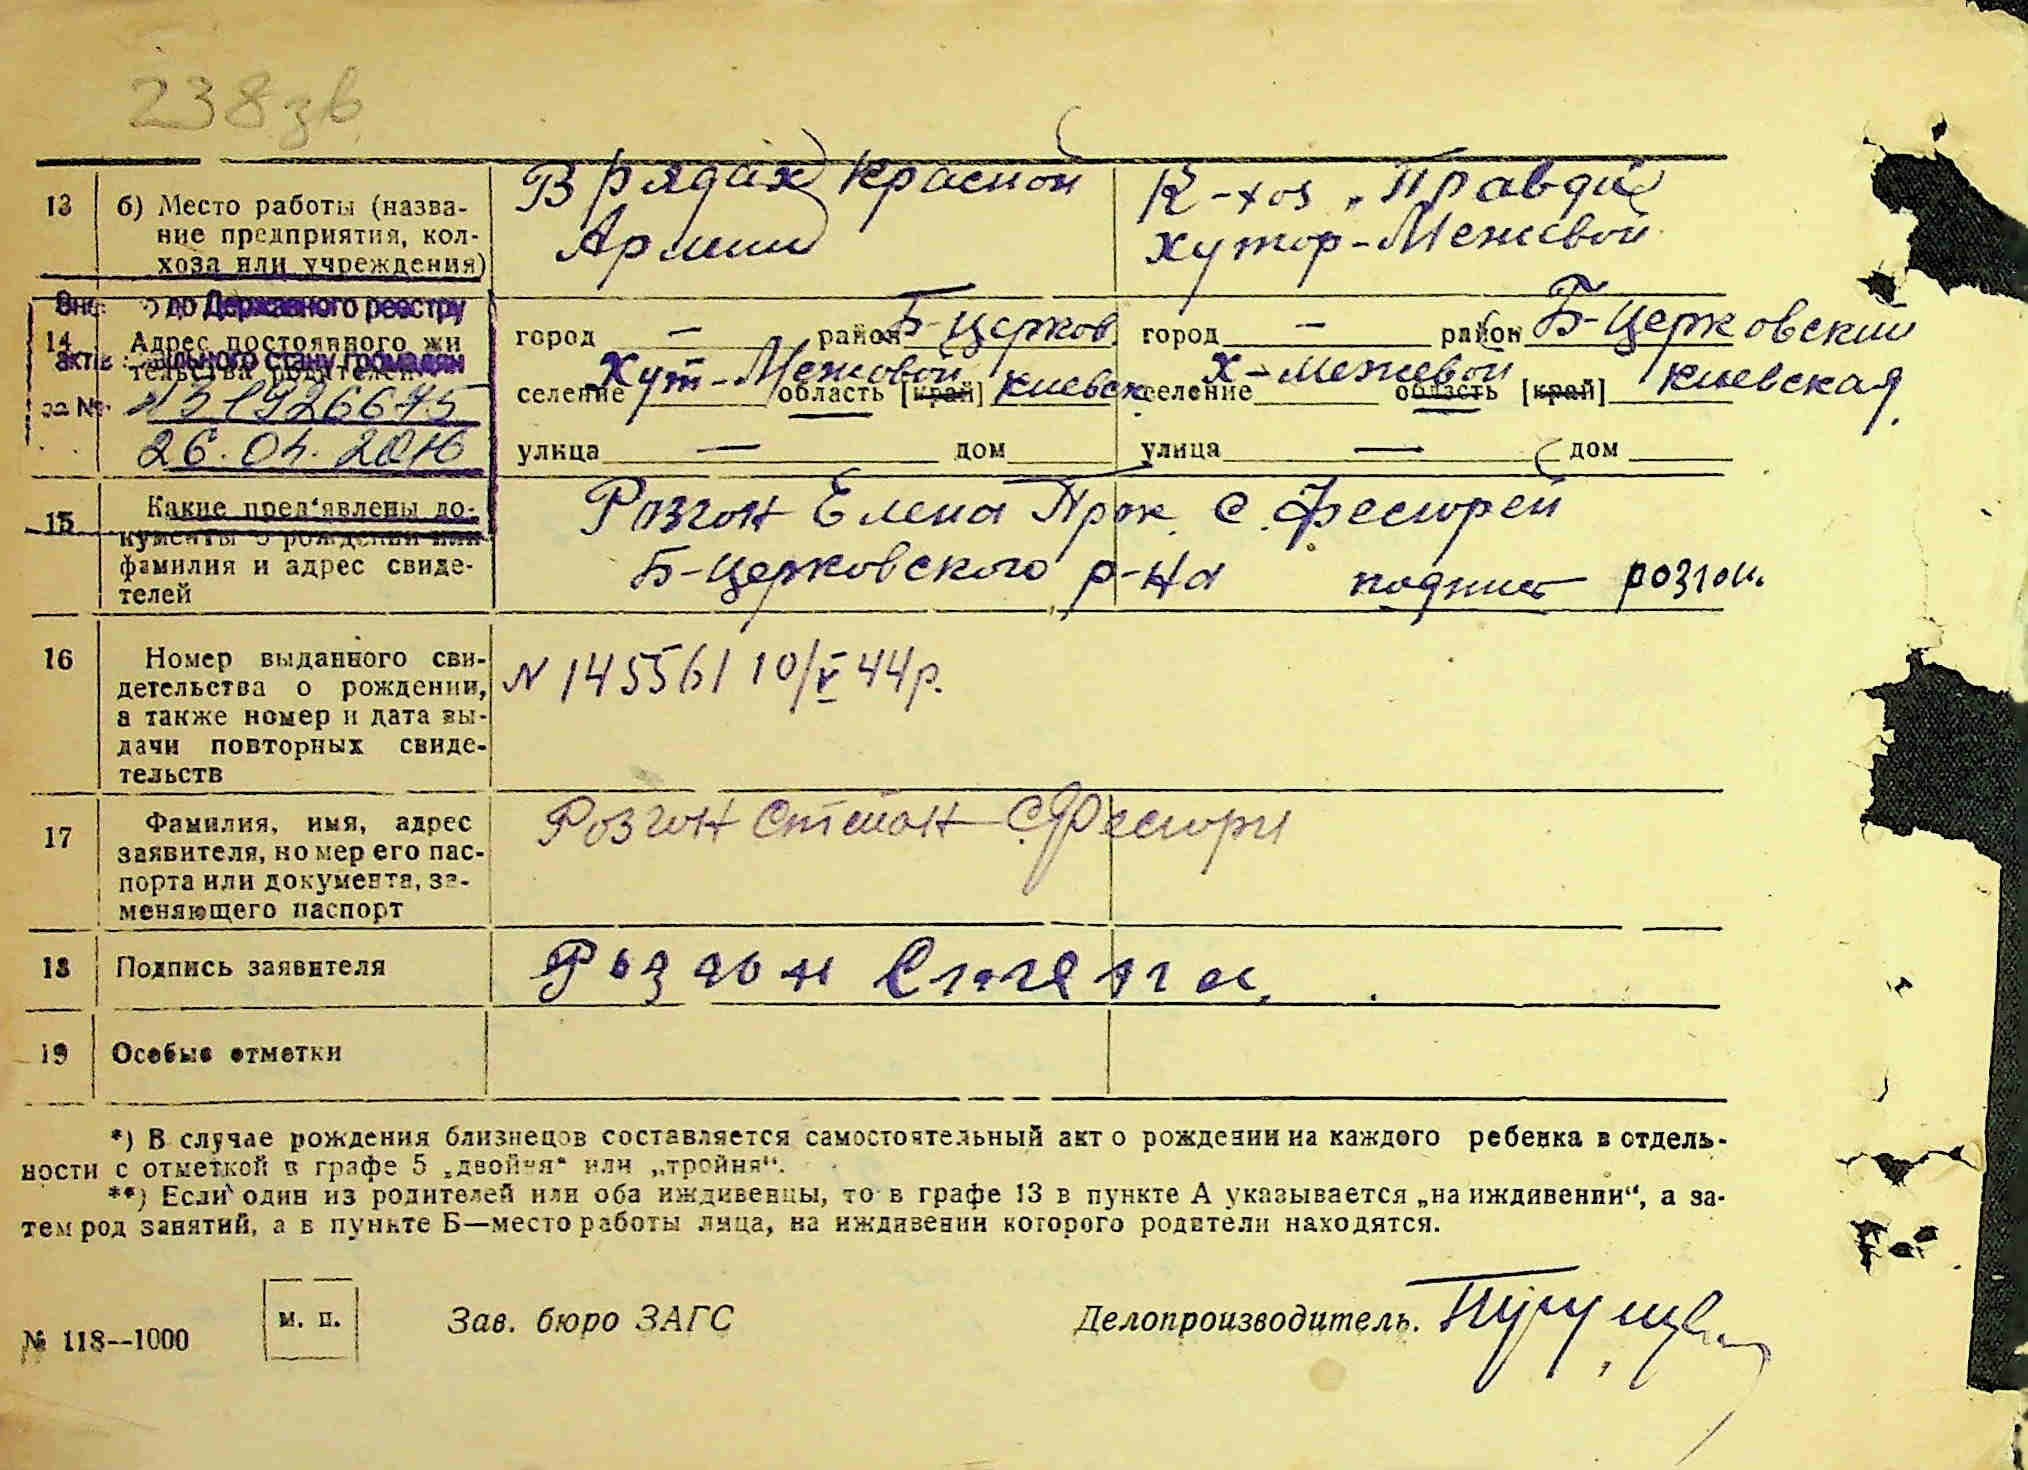 238зв
В рядах Красной К-хоз „Правда
13 б) Место работы (назва-
ние предприятия, кол- Армии хутор-Межевой
хоза или учреждения)
до Державного реєстру
город — район Б-Церков. город — район Б-Церковский
14 Адрес постоянного жи
тельства родителей
актів цивільного стану громадян
селение Хут-Межовой область [край] киевск селение Х-Межевой область [край] киевская
за №
26.04.2016
улица — дом улица — дом
15 Какие пред'явлены до- Розгон Елена Прок. С. Фесюрей
кументы о рождении или
фамилия и адрес свиде- Б-Церковского р-на подпись розгон.
телей
16 Номер выданного сви- N 145561 10/V 44р.
детельства о рождении,
а также номер и дата вы-
дачи повторных свиде-
тельств
17 Фамилия, имя, адрес Розгон Степан С. Фесюри
заявителя, номер его пас-
порта или документа, за-
меняющего паспорт
18 Подпись заявителя Розгон
19 Особые отметки
*) В случае рождения близнецов составляется самостоятельный акт о рождении на каждого ребенка в отдель-
ности с отметкой в графе 5 „двойня“ или „тройня“.
**) Если один из родителей или оба иждивенцы, то в графе 13 в пункте А указывается „на иждивении“, а за-
тем род занятий, а в пункте Б—место работы лица, на иждивении которого родители находятся.
№ 118--1000 м. п. Зав. бюро ЗАГС Делопроизводитель.